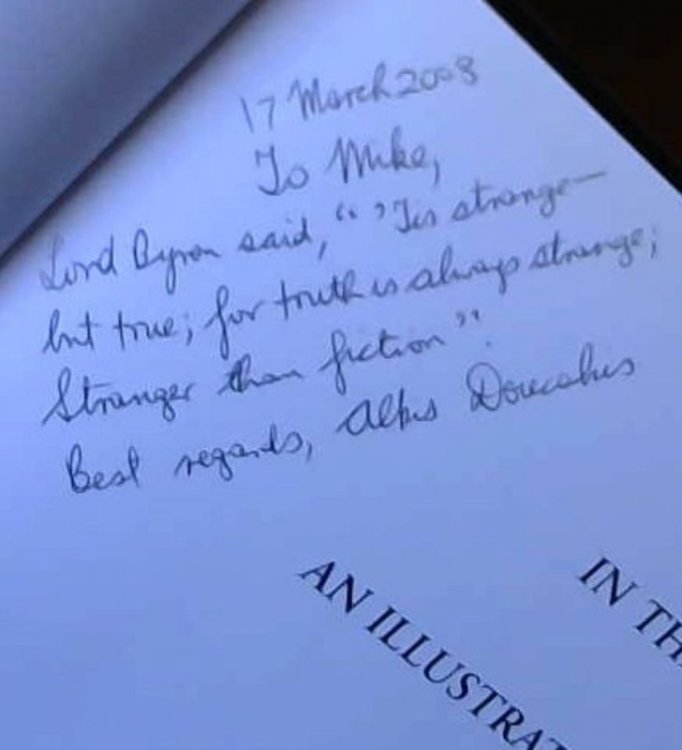 17 March 2008
To Mike,
Lord Byron said, "'Tis strange—
but true; for truth is always strange;
Stranger than fiction".
Best regards,
IN TH
AN ILLUSTRAT